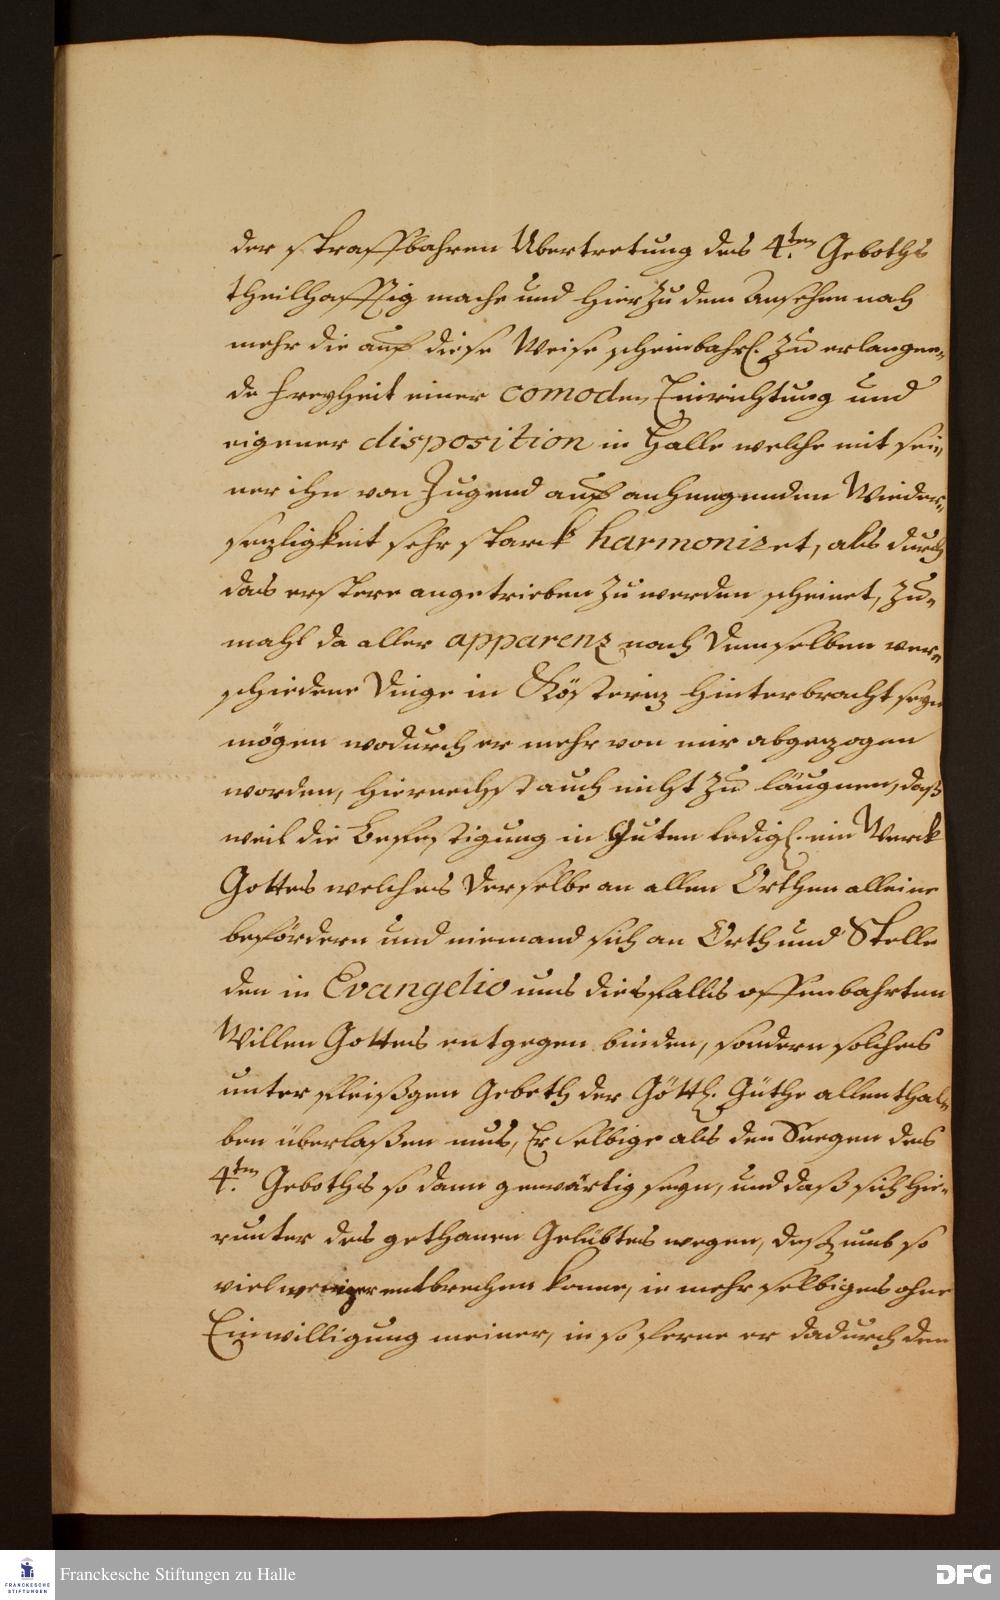 der straffbahren Ubertretung des 4.ten Geboths
theilhafftig mache und hierzu dem Ansehen nach
mehr die auf diese Weise scheinbahrl. zu erlangen-
de Freyheit einer comoden Einrichtung und
eigener disposition in Halle welche mit sei-
ner ihn von Jugend auf anhengenden Wieder-
sezligkeit sehr starck harmonizet, als durch
das erstere angetrieben zu werden scheinet, zu-
mahl da aller apparenz nach demselben ver-
schiedene Dinge in Kösteriz hinterbracht seyn
mögen wodurch er mehr von mir abgezogen
worden, hiernechst auch nicht zu läugnen, daß
weil die Befestigung in Guten ledigl. ein Werck
Gottes welches derselbe an allen Orthen alleine
befördern und niemand sich an Orth und Stelle
den in Evangelio uns diesfalls offenbahrten
Willen Gottes entgegen binden, sondern solches
unter fleißgen Gebeth der Göttl. Güthe allenthal-
ben überlaßen mus, Er selbige als den Seegen des
4.ten Geboths so dann gewärtig seyn, und daß sich hie-
runter des gethanen Gelübtes wegen, umb so
viel weniger entbrechen könne, ie mehr selbiges ohne
Einwilligung meiner, in so ferne er dadurch den
Franckesche Stiftungen zu Halle
FRANCKESCHE
STIFTUNGEN
DFG